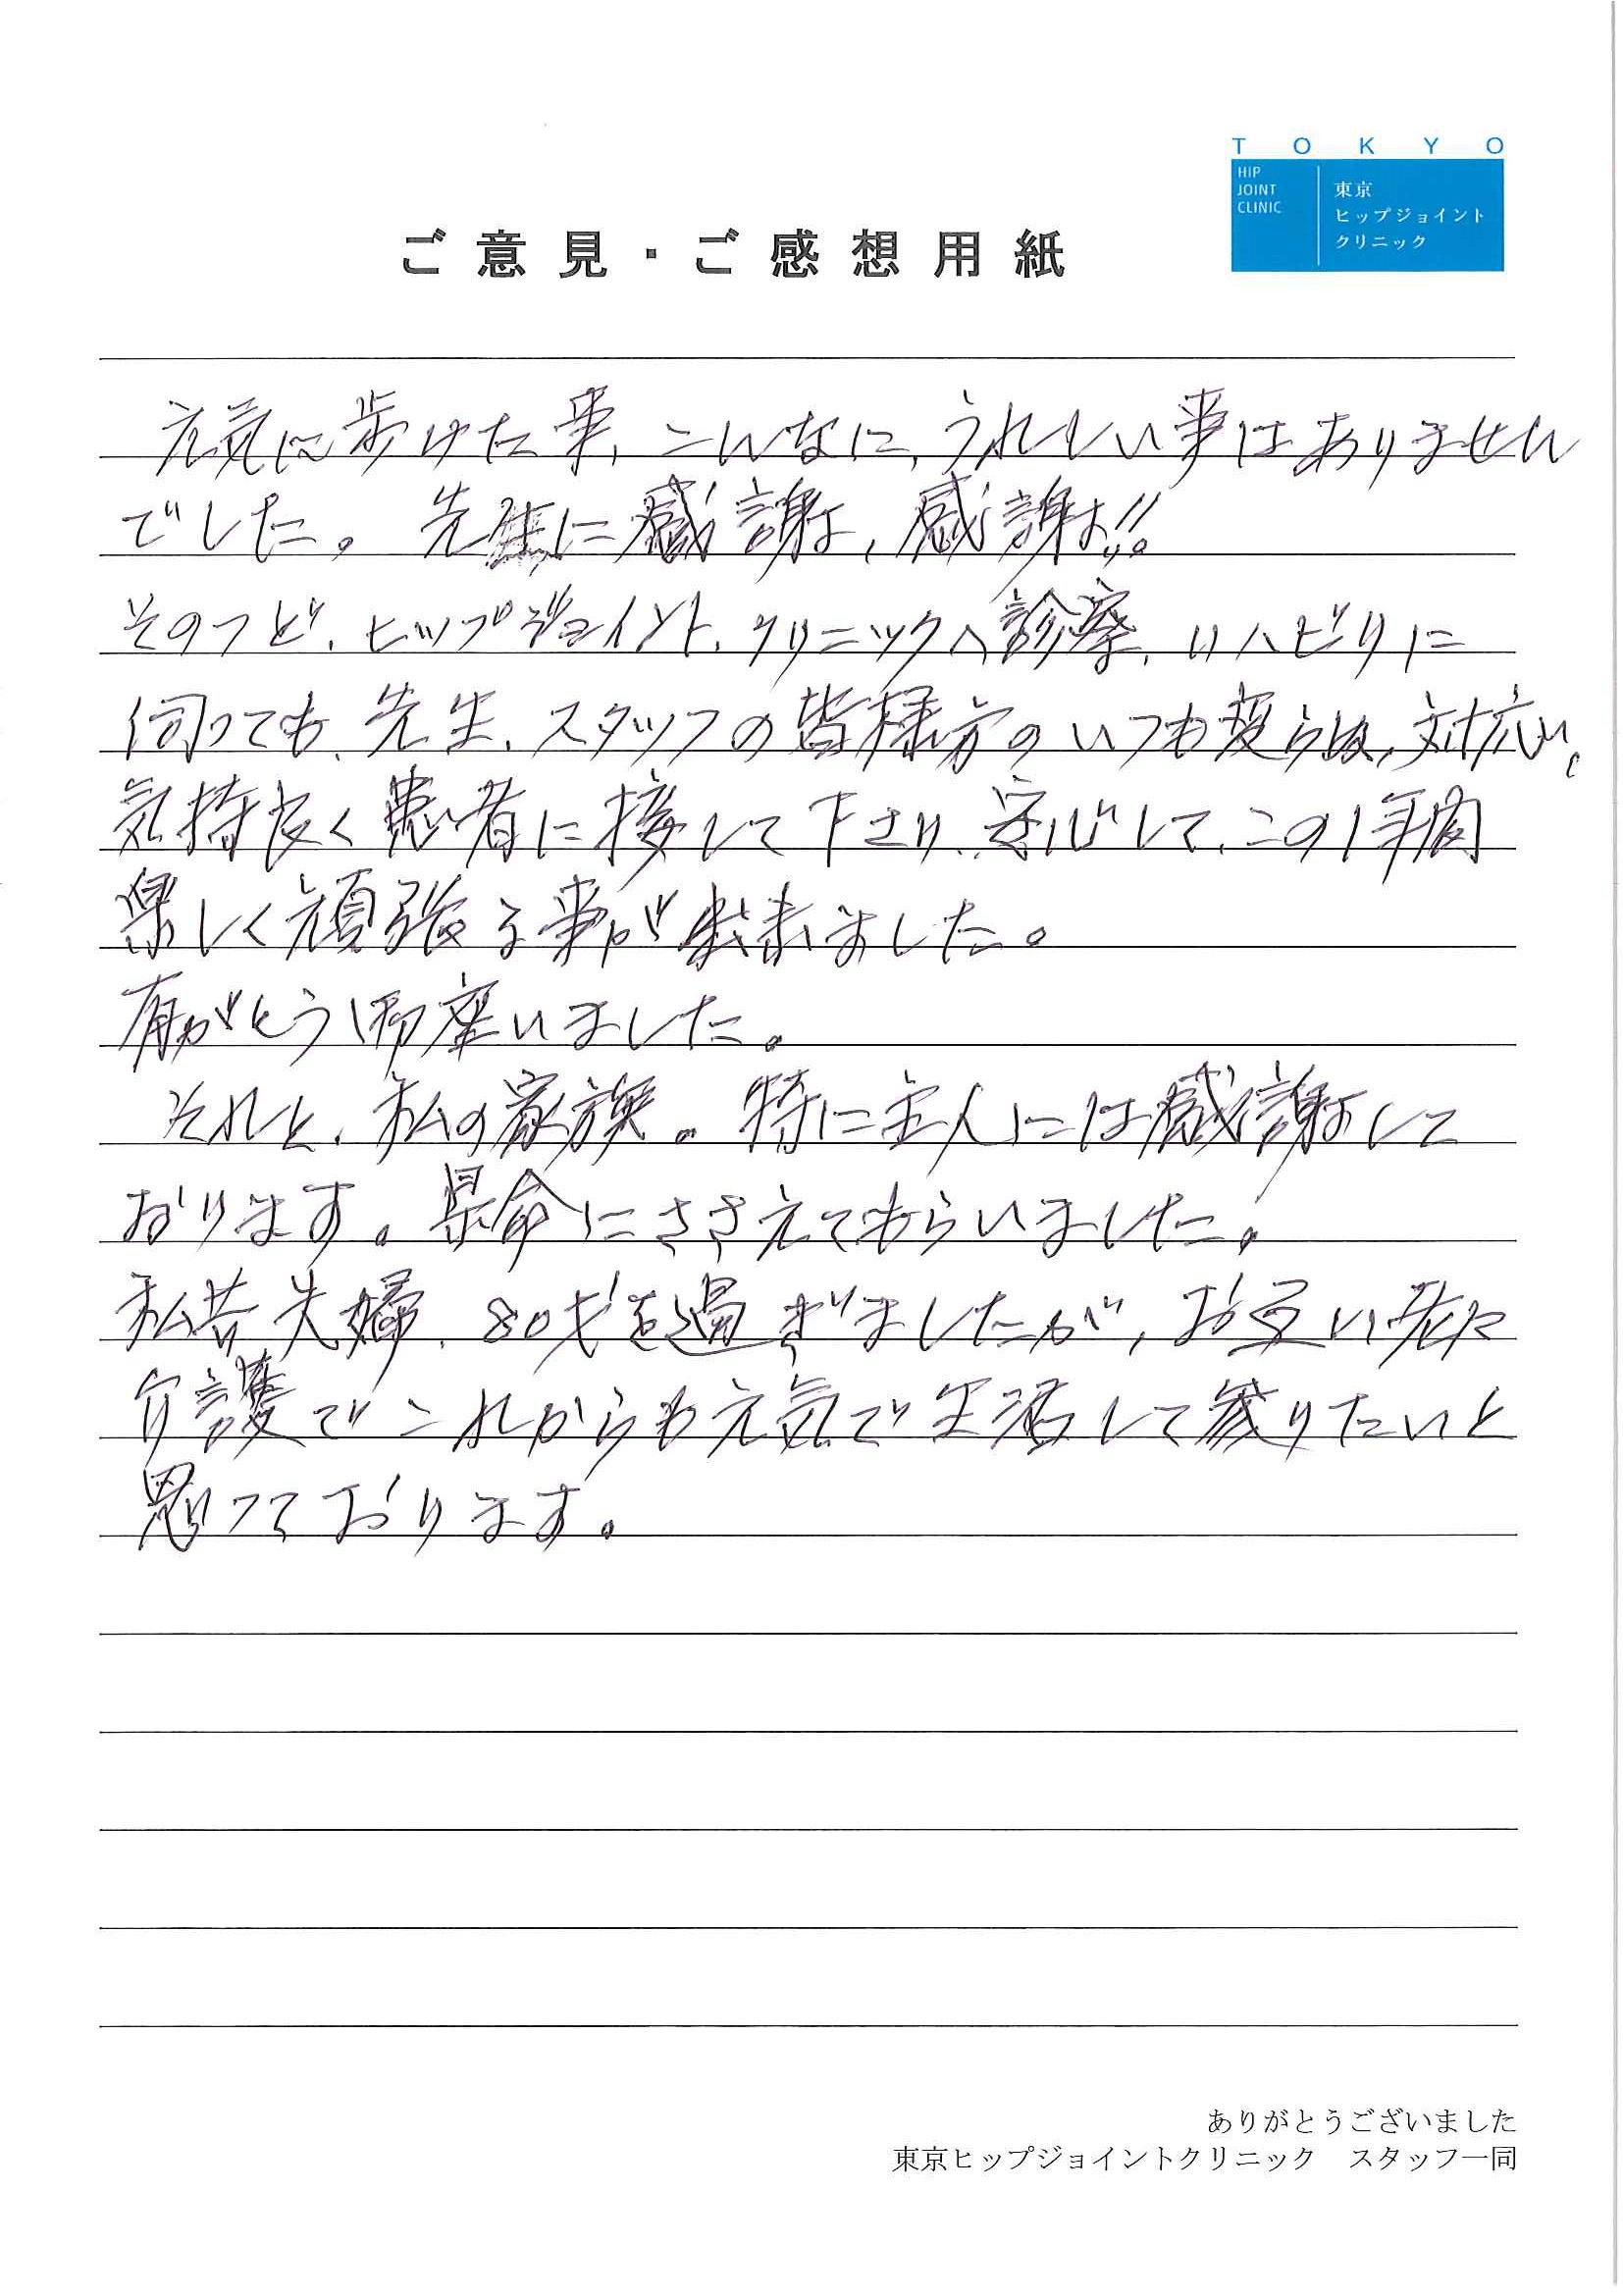 TOKYO
HIP
JOINT
CLINIC
東京
ヒップジョイント
クリニック
ご意見・ご感想用紙
元気に歩けた事、こんなに、うれしい事はありません
でした。先生に感謝、感謝!!。
そのつど、ヒップジョイント、クリニックへ診察、リハビリに
伺っても、先生、スタッフの皆様方のいつも変らぬ、対応に、
気持良く患者に接して下さり、安心して、この1年間
楽しく頑張る事が出来ました。
有がとう御座いました。
それと、私の家族。特に主人には感謝して
おります。懸命にささえてもらいました。
私共夫婦、80才を過ぎましたが、お互い老々
介護でこれからも元気で生活して参りたいと
思っております。
ありがとうございました
東京ヒップジョイントクリニック スタッフ一同